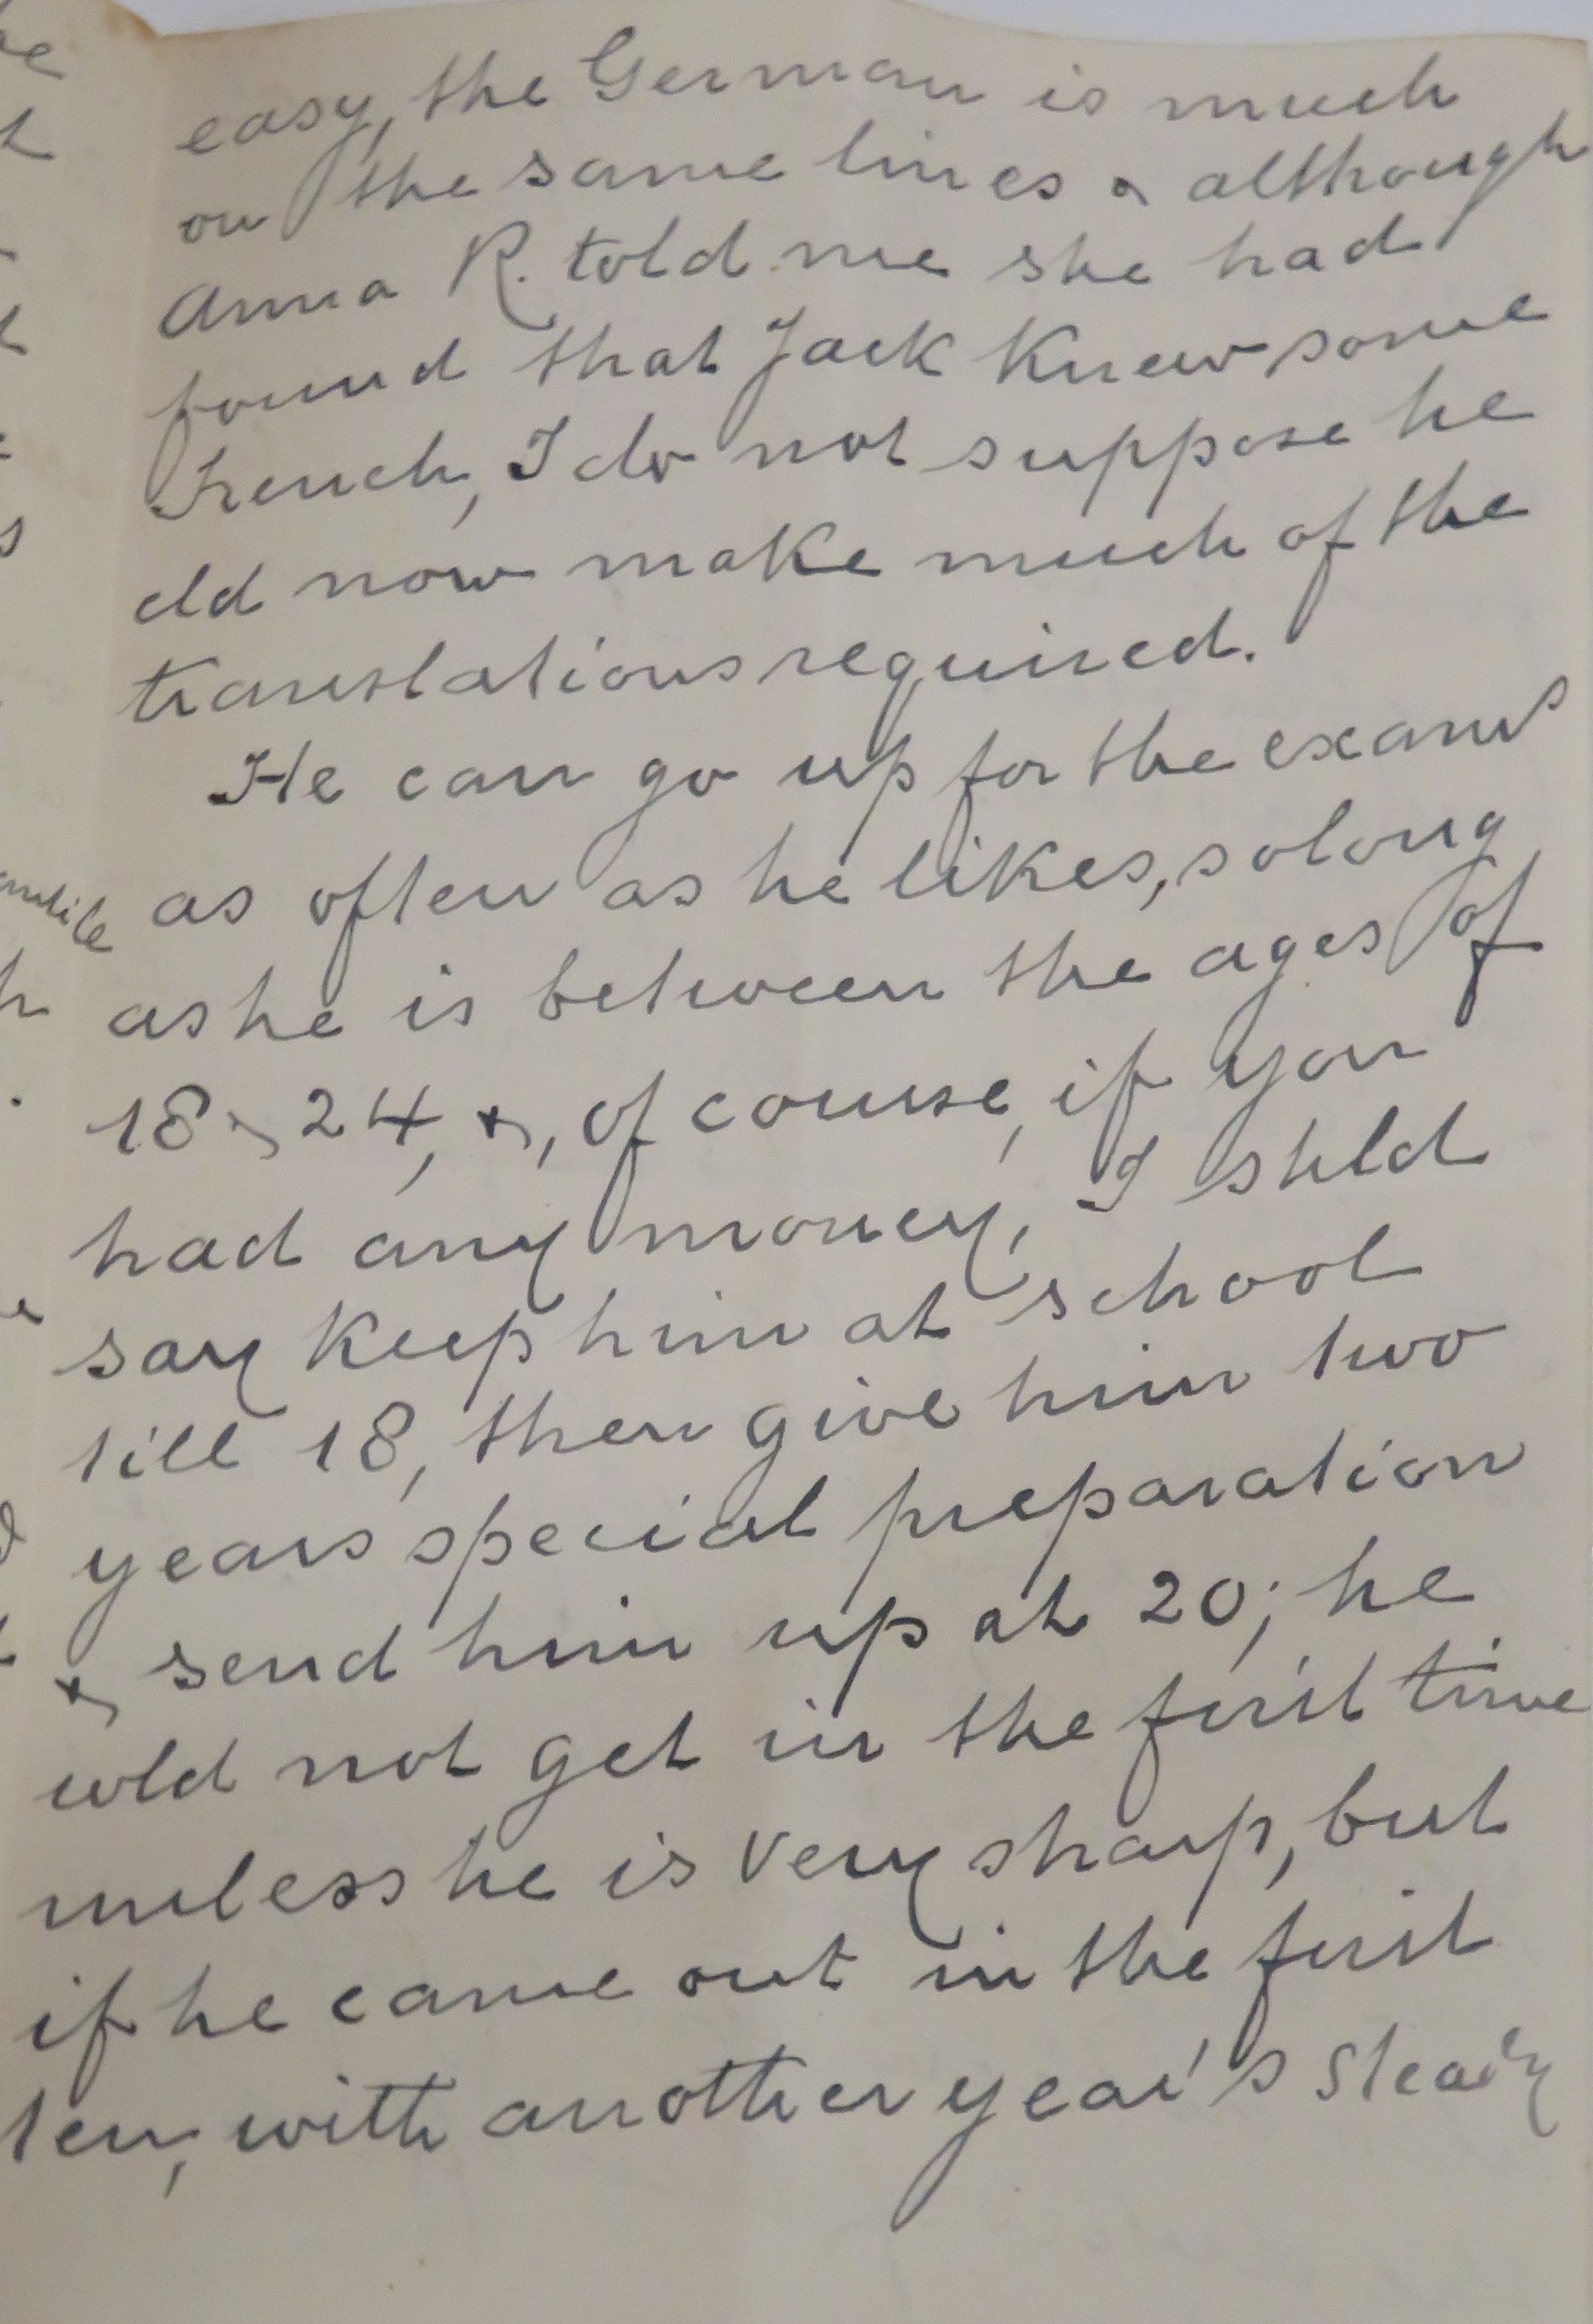 easy, the German is much
on the same lines & although
Anna R. told me she had
found that Jack knew some
French, I do not suppose he
cld now make much of the
translations required.
He can go up for the exams
as often as he likes, so long
as he is between the ages of
18 & 24, &, of course, if you
had any money, I shld
say keep him at school
till 18, then give him two
years special preparation
& send him up at 20; he
wld not get in the first time
unless he is very sharp, but
if he came out in the first
ten, with another year's steady